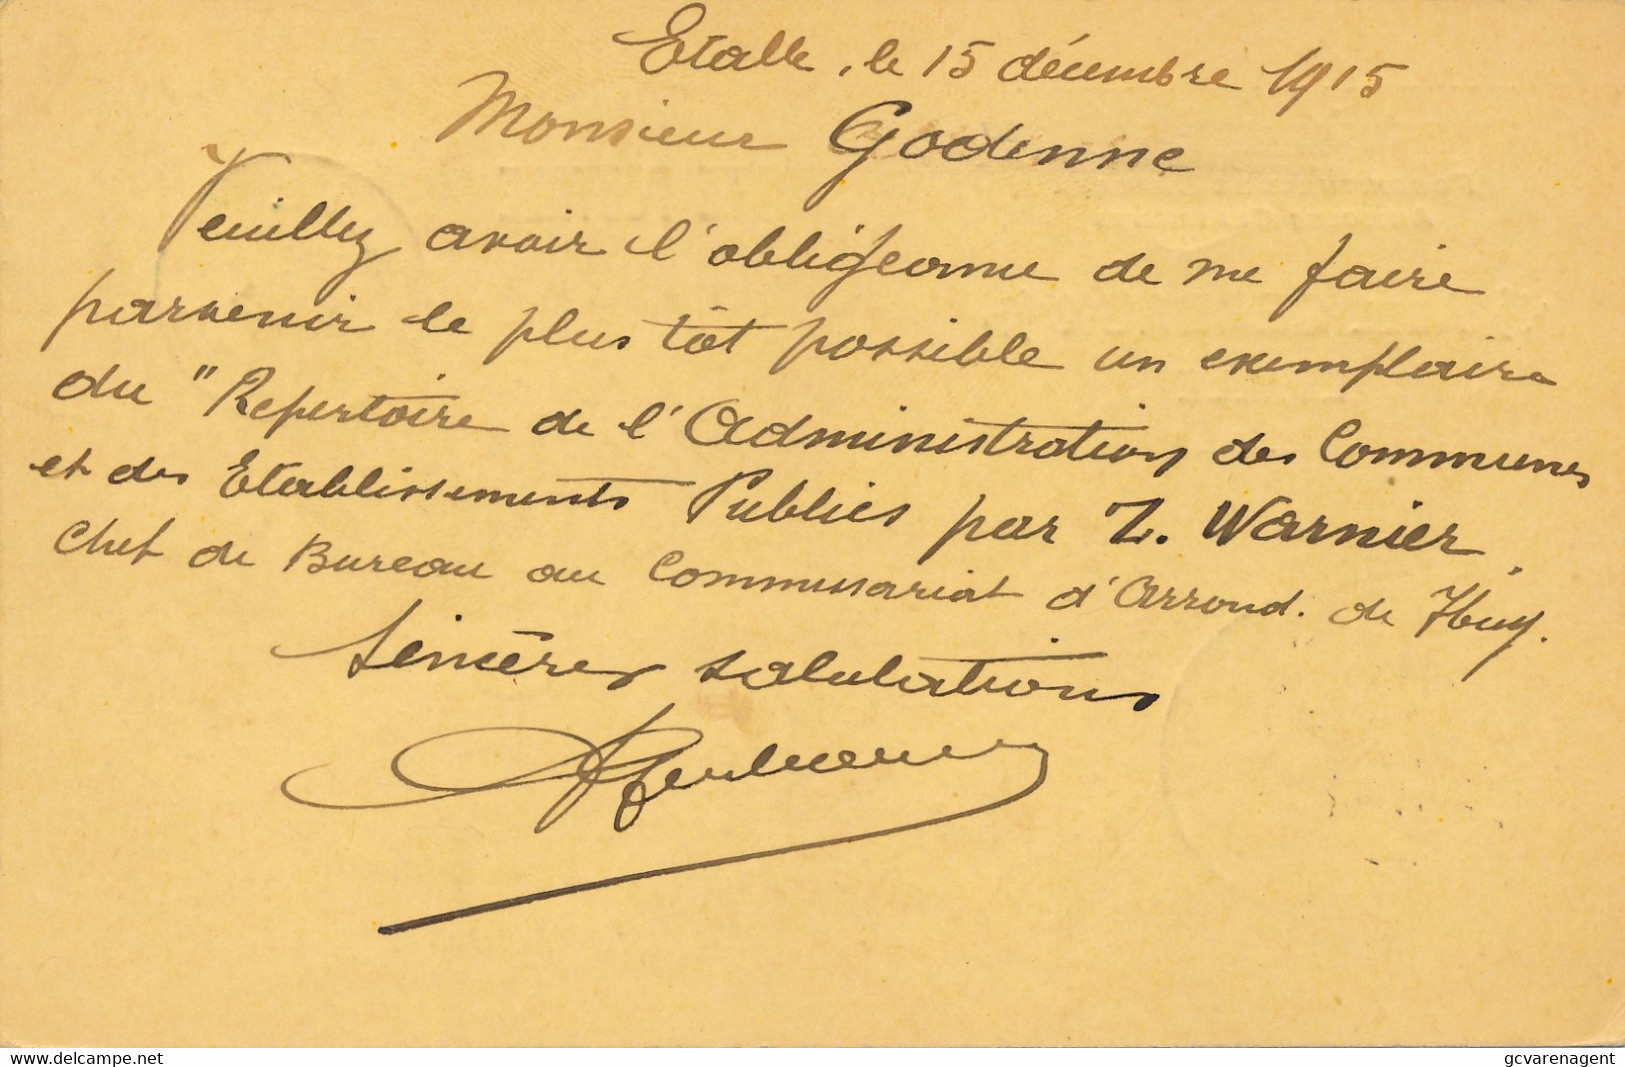 Etalle, le 15 décembre 1915
Monsieur Godenne
Veuillez avoir l'obligeance de me faire
parvenir le plus tôt possible un exemplaire
du "Repertoire de l'Administration des Communes
et des Etablissements Publics par Z. Warnier,
Chef de Bureau au Commissariat d'Arrond. de Huy.
Sincères salutations
www.delcampe.net
gcvarenagent